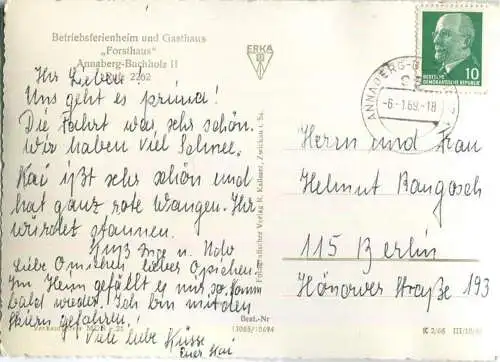 Betriebsferienheim und Gasthaus
„Forsthaus"
Annaberg-Buchholz II
2262
Ihr Lieben!
Uns geht es prima!
Die Fahrt war sehr schön.
Wir haben viel Schnee.
Kai ißt sehr schön und
hat ganz rote Wangen. Ihr
würdet staunen.
Gruß Inge u. Udo
Liebe Omi lieber Opi
Im Heim gefällt es mir so, komm
bald wieder. Ich bin mit den
Skiern gefahren!
Viele liebe Küsse
Euer Kai
Verkaufspreis MDN -.25
Best.-Nr
13065/10694
Fotografischer Verlag R. Kallmer, Zwickau i. Sa.
ERKA
ANNABERG-B
-6.-1.69.-18
10
DEUTSCHE
DEMOKRATISCHE REPUBLIK
Herrn und Frau
Helmut Bangosch
115 Berlin
Hönower Straße 193
K 2/66
III/18/